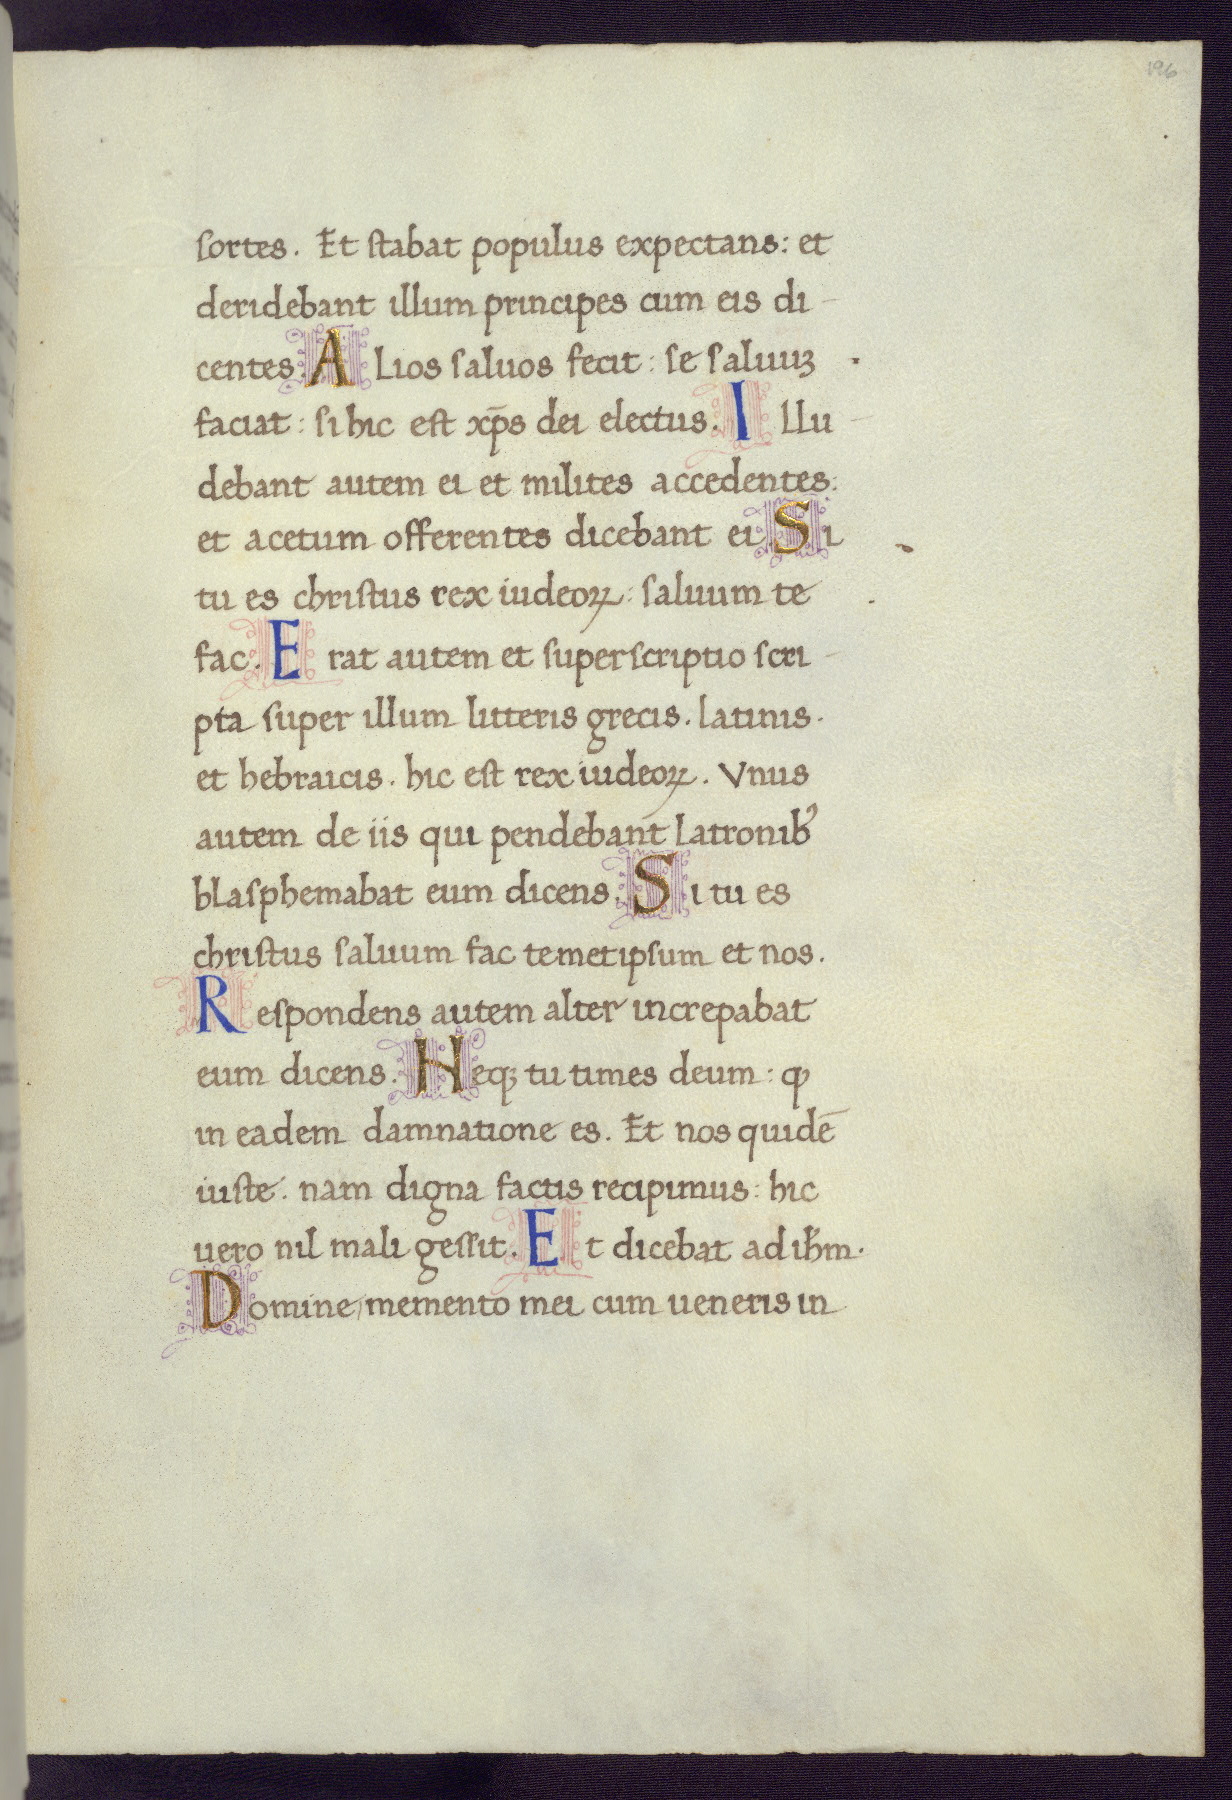 196
sortes. Et stabat populus expectans: et
deridebant illum principes cum eis di-
centes. Alios saluos fecit: se saluuꝫ
faciat: si hic est xp̄s dei electus. Illu-
debant autem ei et milites accedentes:
et acetum offerentes dicebant ei. Si
tu es christus rex iudeoꝝ: saluum te
fac. Erat autem et superscriptio scri-
pta super illum litteris grecis. latinis.
et hebraicis. hic est rex iudeoꝝ. Vnus
autem de iis qui pendebant latronibꝰ
blasphemabat eum dicens. Si tu es
christus saluum fac temetipsum et nos.
Respondens autem alter increpabat
eum dicens. Neqꝫ tu times deum: ꝙ
in eadem damnatione es. Et nos quidē
iuste. nam digna factis recipimus: hic
uero nil mali gessit. Et dicebat ad ih̄m.
Domine/memento mei cum ueneris in